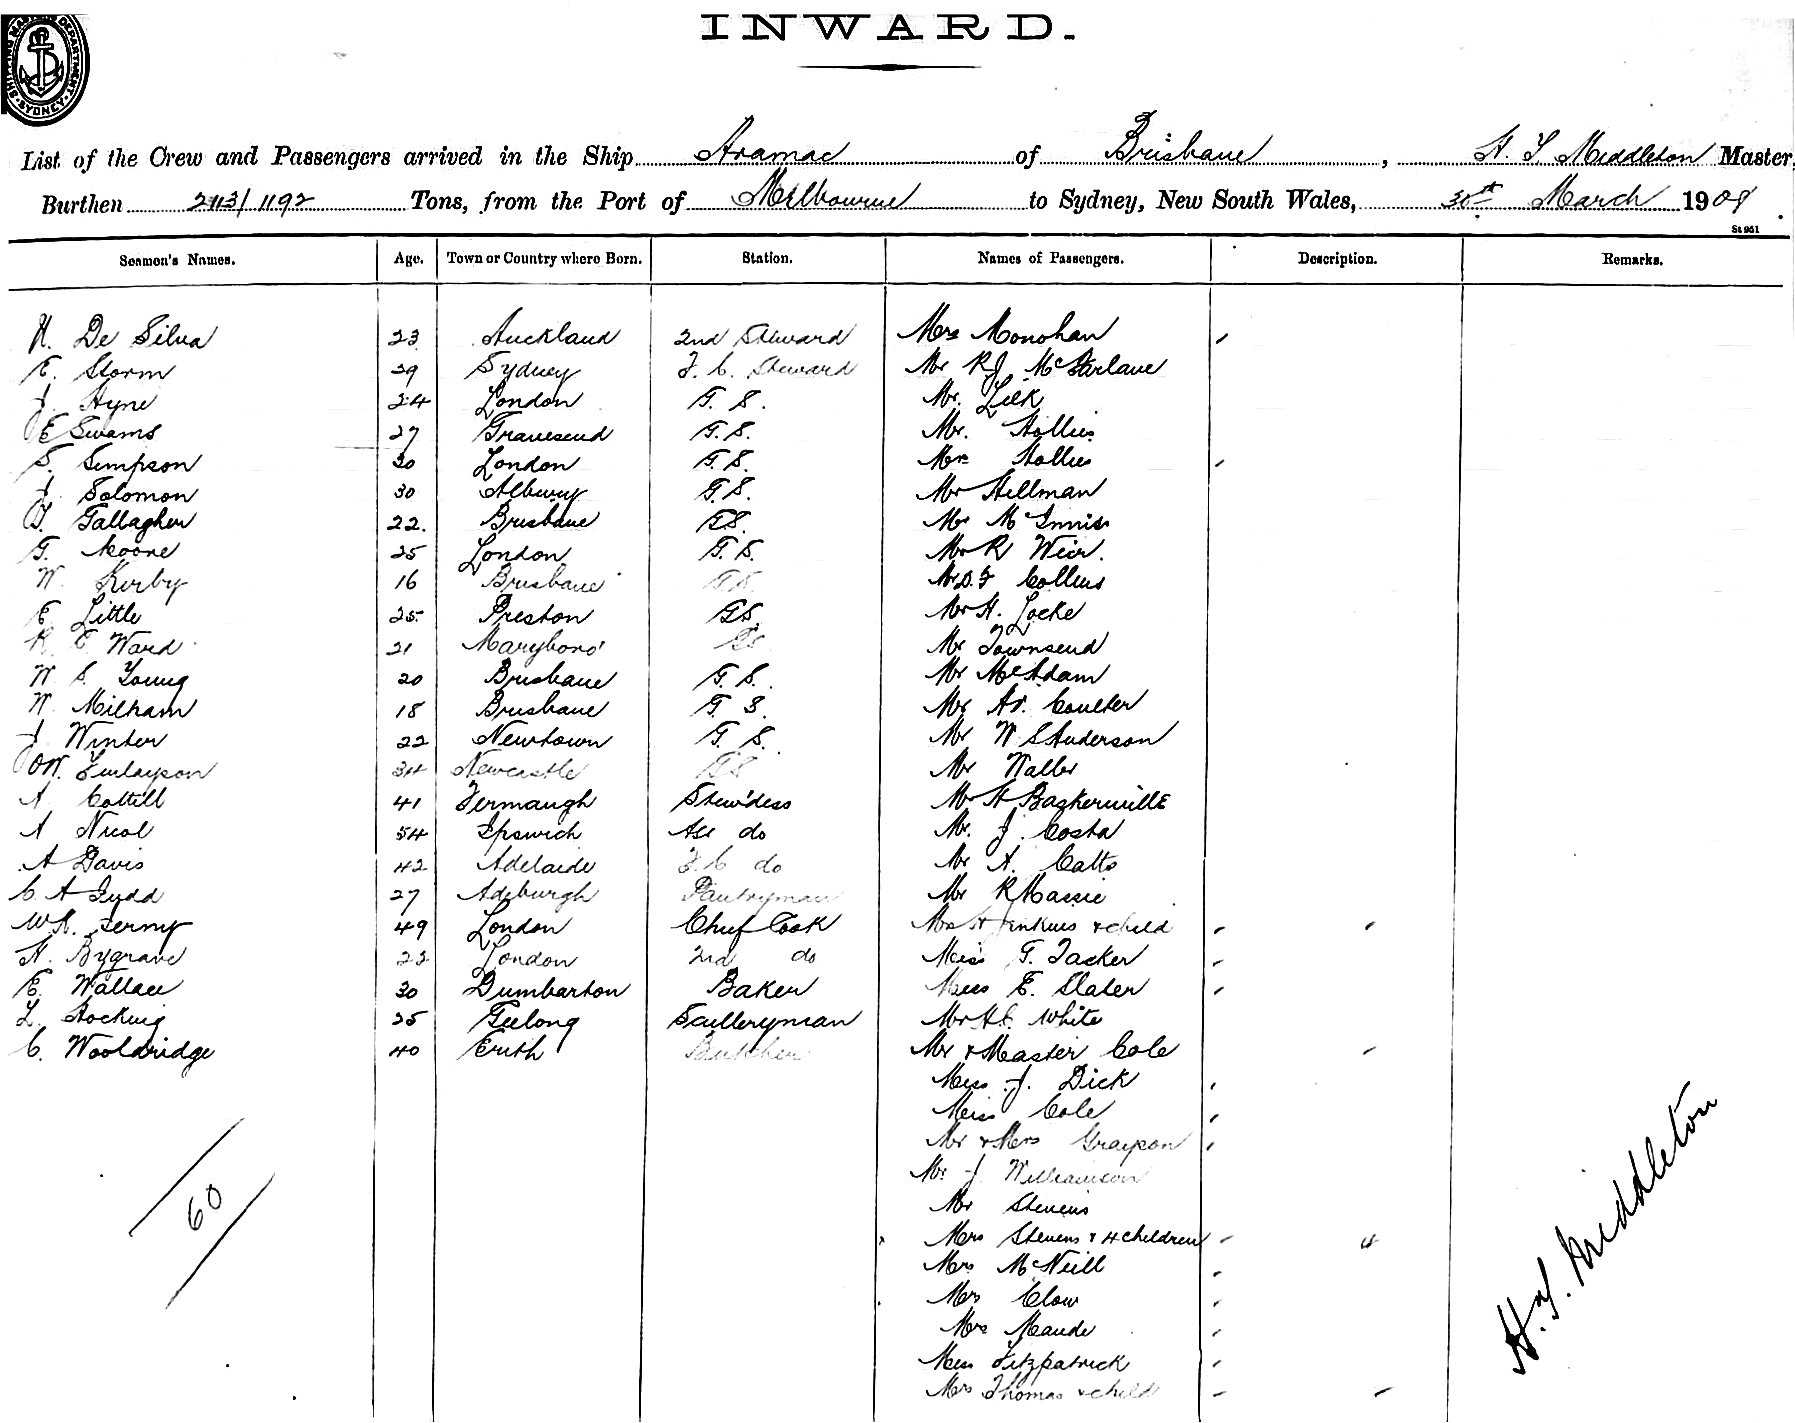 INWARD.
SHIPPING MASTER'S DEPARTMENT. SYDNEY
List of the Crew and Passengers arrived in the Ship Aramac of Brisbane, H. T Middleton Master,
Burthen 2113/1192 Tons, from the Port of Melbourne to Sydney, New South Wales, 30th March 1908.
St 951
Seamen's Names. Age. Town or Country where Born. Station. Names of Passengers. Description. Remarks.
H. De Silva 23 Auckland 2nd Steward Mrs Monohan
E. Storm 29 Sydney F. C. Steward Mr R J McFarlane
J. Hyne 24 London G. S. Mr. Lilk
E Swams 27 Gravesend G. S. Mr. Hollis
S. Simpson 30 London G. S. Mrs Hollis
J. Solomon 30 Albury G. S. Mr Hillman
J. Gallagher 22. Brisbane GS. Mr McInnis
G. Moore 25 London G. S. Mr R Weir.
W. Kirby 16 Brisbane G S. Mr D. F Collins
E. Little 25. Preston GS. Mr H. Locke
R E Ward 21 Maryboro' GS Mr Townsend
W. S. Young 20 Brisbane G. S. Mr McAdam
W. Milham 18 Brisbane G S. Mr Coulter
J Winter 22 Newtown G. S. Mr W S Anderson
W. Finlayson 34 Newcastle GS Mr Waller
A Cottell 41 Fermaugh Stew'dess Mr H Baskerville
A Nicol 54 Ipswich Ass do Mr. J. Costa
A Davis 42 Adelaide F C do Mr A. Catts
C A Judd 27 Adeburgh Pantryman Mr R Massie
W. H. Ferny 49 London Chief Cook Mrs H Jinkins & child
H. Bygrave 22 London 2nd do Miss F. Tacker
E. Wallace 30 Dumbarton Baker Miss E. Slater
L. Hocking 25 Geelong Sculleryman Mr H C. White
C. Wooldridge 40 Erith Butcher Mr & Master Cole
Miss J. Dick
Miss Cole
Mr & Mrs Grayson
Mr. J Williamson
Mr Stevens
Mrs Stevens & 4 children 4
Mrs McNeill
Mrs Clow
Mrs Maude
Miss Fitzpatrick
Mrs Thomas & child
60
H. T. Middleton